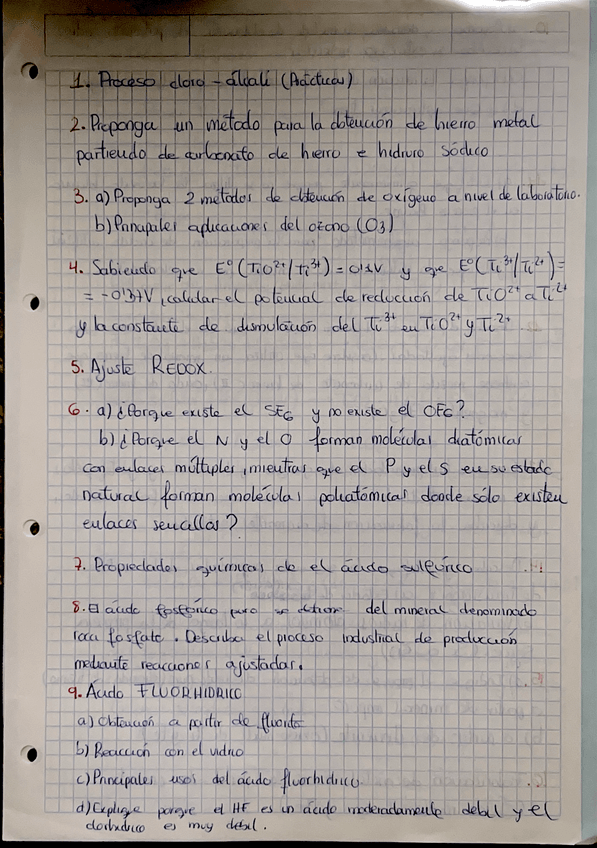 1. Proceso cloro-álcali (Prácticas)
2. Proponga un método para la obtención de hierro metal
partiendo de carbonato de hierro e hidruro sódico
3. a) Proponga 2 métodos de obtención de oxígeno a nivel de laboratorio.
b) Principales aplicaciones del ozono (O3)
4. Sabiendo que Eº(TiO²⁺/Ti³⁺) = 0'1V y que Eº(Ti³⁺/Ti²⁺) =
= -0'37V, calcular el potencial de reducción de TiO²⁺ a Ti²⁺
y la constante de dismutación del Ti³⁺ en TiO²⁺ y Ti²⁺.
5. Ajuste REDOX.
6. a) ¿Porque existe el SF6 y no existe el OF6?
b) ¿Porque el N y el O forman moléculas diatómicas
con enlaces múltiples, mientras que el P y el S en su estado
natural forman moléculas poliatómicas donde sólo existen
enlaces sencillos?
7. Propiedades químicas de el ácido sulfúrico
8. El ácido fosfórico puro se obtiene del mineral denominado
roca fosfato. Describa el proceso industrial de producción
mediante reacciones ajustadas.
9. Ácido FLUORHIDRICO
a) Obtención a partir de fluorita
b) Reacción con el vidrio
c) Principales usos del ácido fluorhídrico
d) Explique porque el HF es un ácido moderadamente debil y el
es muy debil.